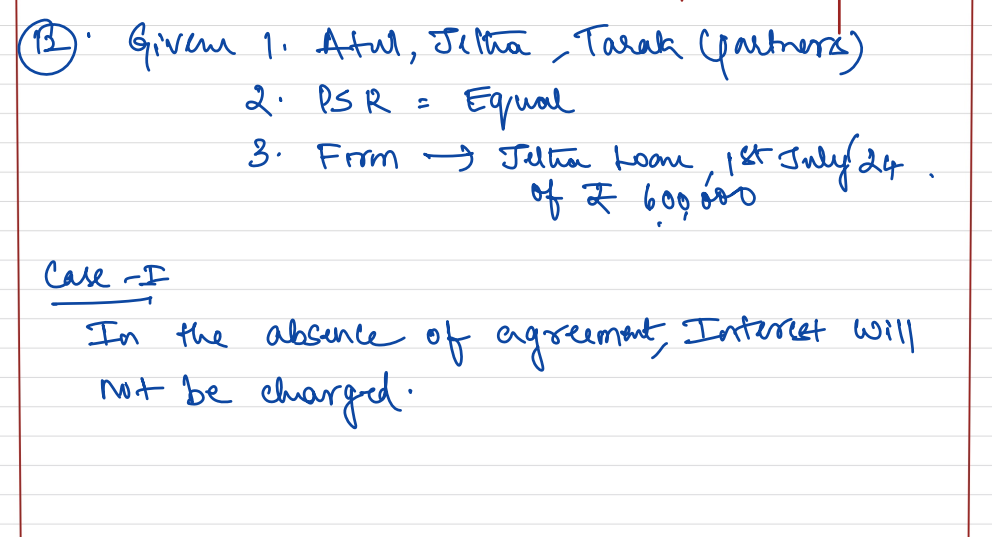 12. Given 1. Atul, Jeltha, Tarak (partners)
2. PSR = Equal
3. Firm → Jeltha Loan, 1st July/24.
of ₹ 600,000
Case - I
In the absence of agreement, Interest will
not be charged.